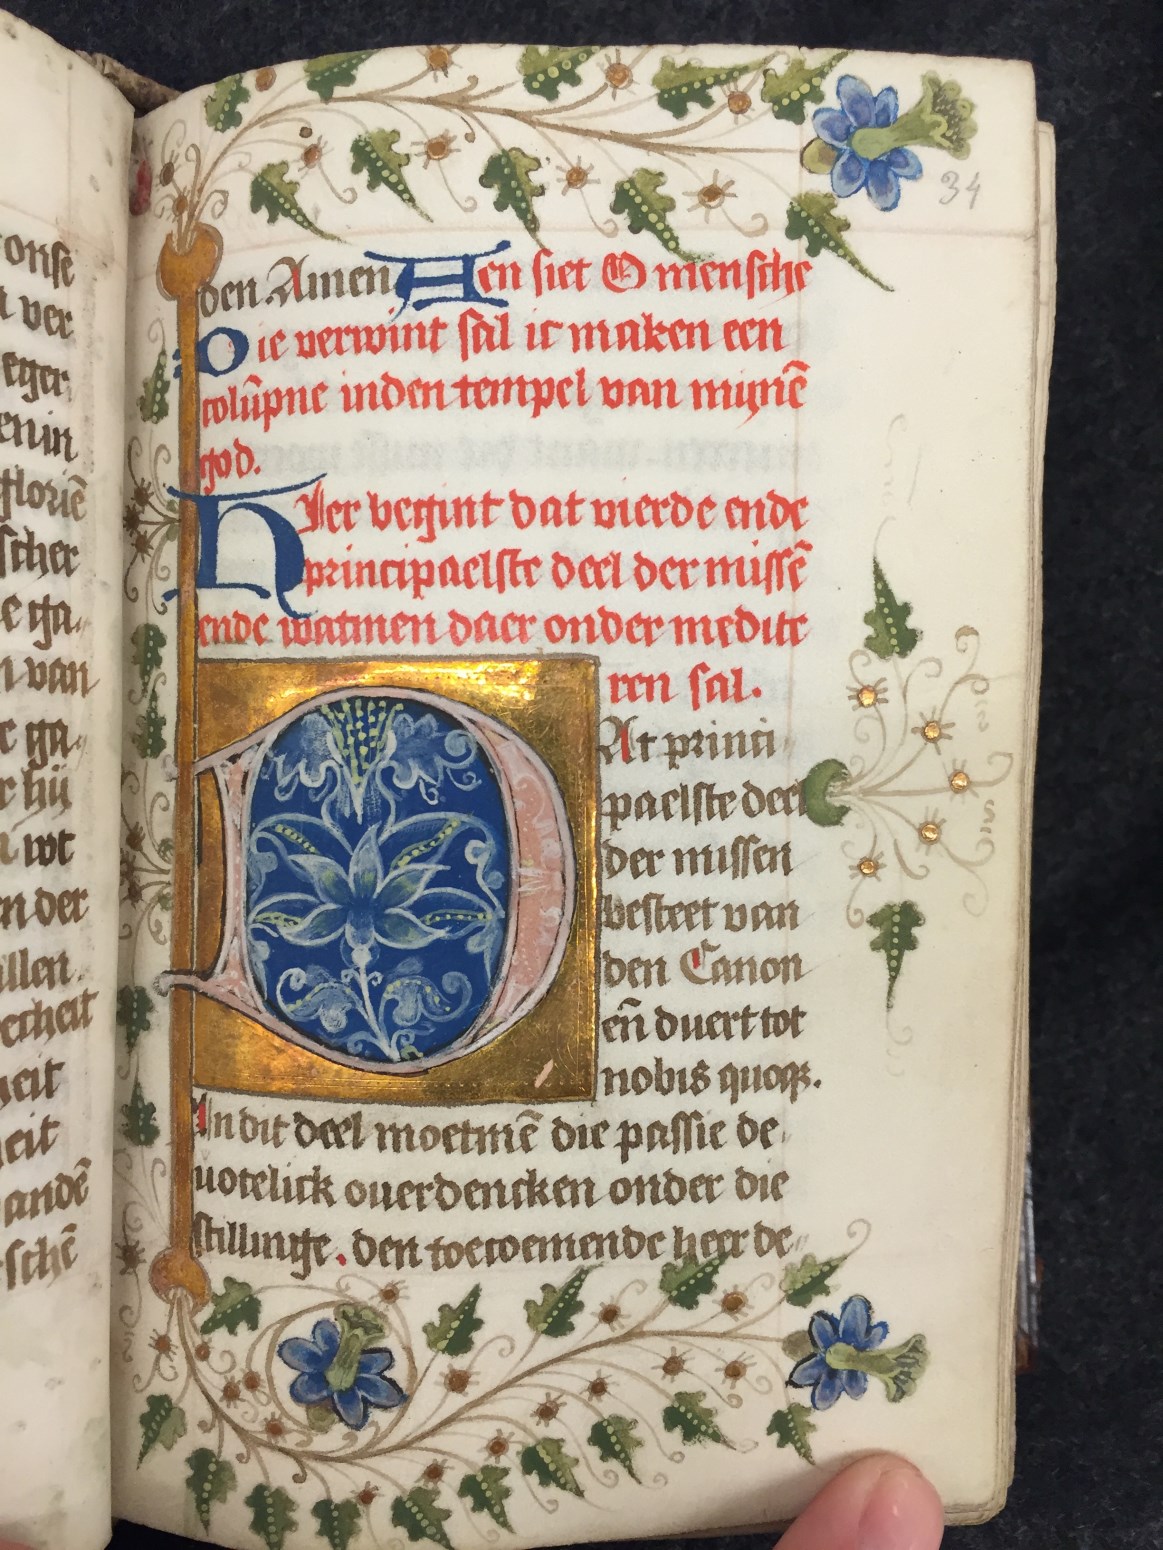 onse
ver
eger
enin
gloriē
scher
e ga
n van
e ga
r hij
wt
n der
illen.
etheit
heit
eit
andē
schē
34
den. Amen Aen siet O mensche
Die verwint sal ic maken een
colūpne inden tempel van mijnē
god.
Hier begint dat vierde ende
principaelste deel der missē
ende watmen daer onder medite
ren sal.
DAt princi
paelste deel
der missen
besteet van
den Canon
eñ duert tot
nobis quoqꝫ.
In dit deel moetmē die passie de
uotelick ouerdencken onder die
stillinge. den toecoemende heer de